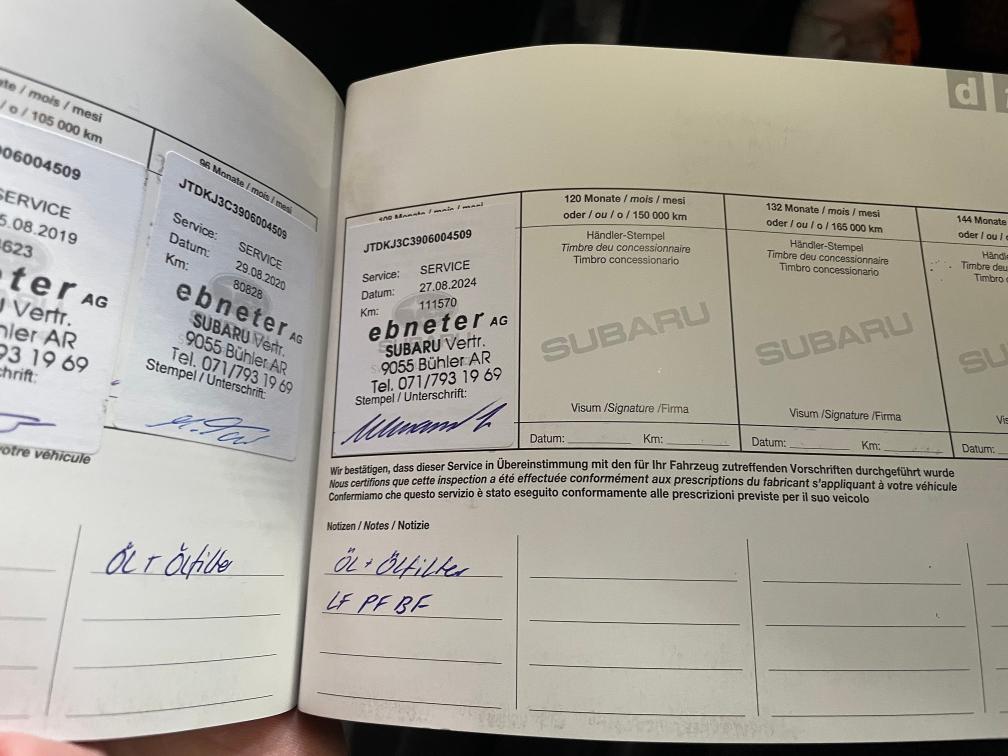 mois / mesi
/ o / 105 000 km
06004509
SERVICE
5.08.2019
4623
AG
Vertr.
hler AR
93 19 69
hrift:
otre véhicule
96 Monate / mois / mesi
JTDKJ3C3906004509
Service: SERVICE
Datum: 29.08.2020
Km: 80828
ebneter AG
SUBARU Vertr.
9055 Bühler AR
Tel. 071/793 19 69
Stempel / Unterschrift:
Öl + Ölfilter
d
JTDKJ3C3906004509
Service: SERVICE
Datum: 27.08.2024
Km: 111570
ebneter AG
SUBARU Vertr.
9055 Bühler AR
Tel. 071/793 19 69
Stempel / Unterschrift:
120 Monate / mois / mesi
oder / ou / o / 150 000 km
Händler-Stempel
Timbre deu concessionnaire
Timbro concessionario
SUBARU
Visum /Signature /Firma
Datum: Km:
132 Monate / mois / mesi
oder / ou / o / 165 000 km
Händler-Stempel
Timbre deu concessionnaire
Timbro concessionario
SUBARU
Visum /Signature /Firma
Datum: Km:
144 Monate
oder / ou /
Händl
Timbre deu
Timbro
SU
Datum:
Wir bestätigen, dass dieser Service in Übereinstimmung mit den für Ihr Fahrzeug zutreffenden Vorschriften durchgeführt wurde
Nous certifions que cette inspection a été effectuée conformément aux prescriptions du fabricant s'appliquant à votre véhicule
Confermiamo che questo servizio è stato eseguito conformamente alle prescrizioni previste per il suo veicolo
Notizen / Notes / Notizie
Öl + Ölfilter
LF PF BF